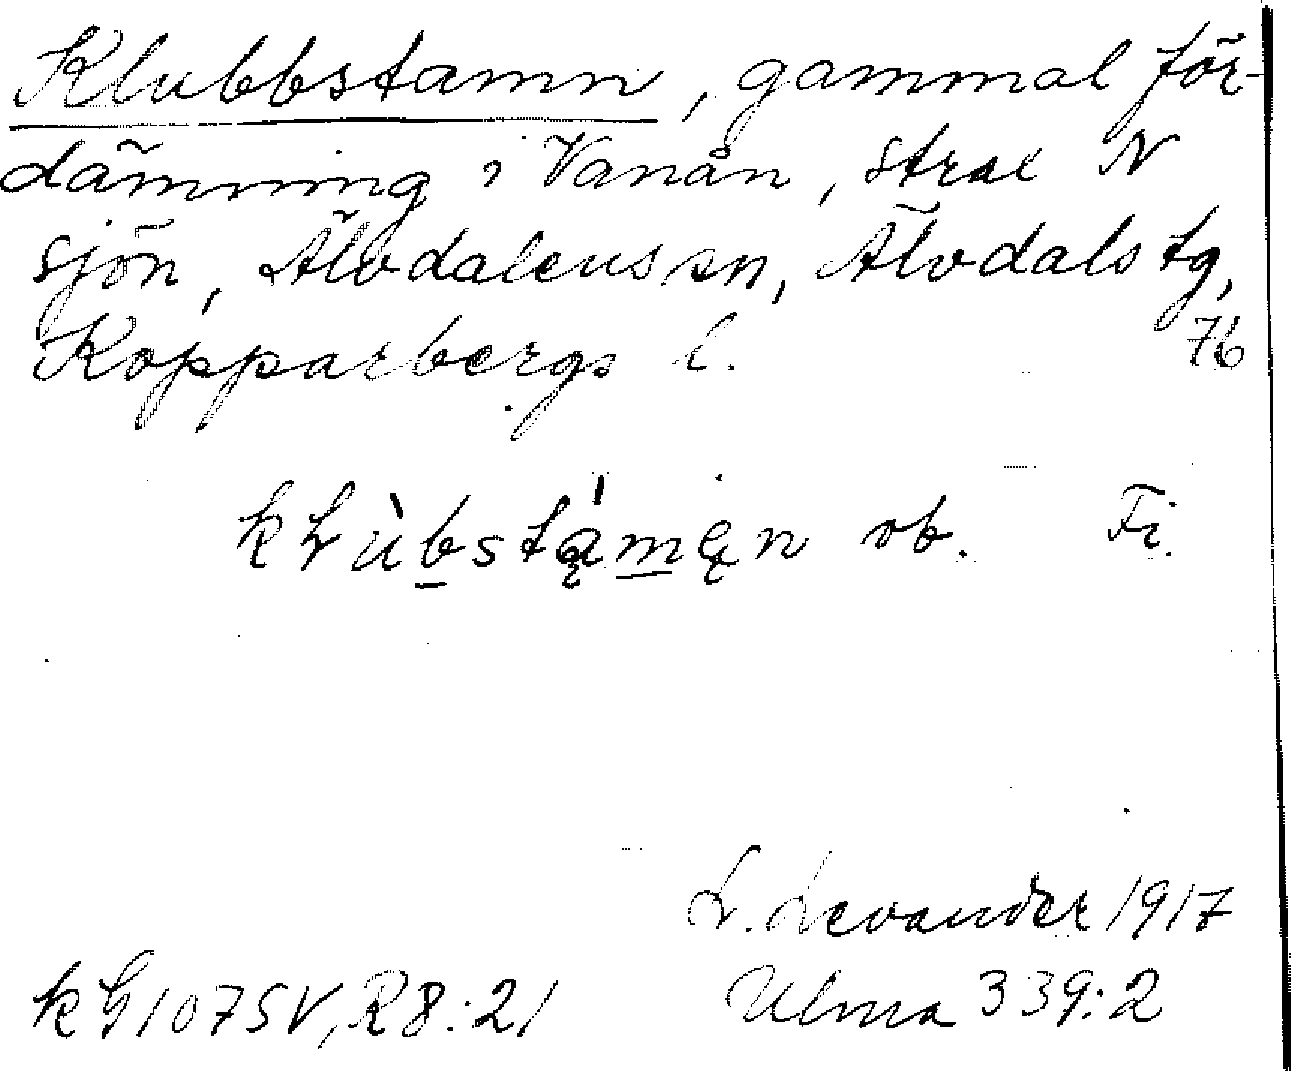 Klubbstamn, gammal för-
dämning i Vanån, strax N
sjön, Älvdalens sn, Älvdals tg,
Kopparbergs l. 76
ob. Fi.
L. Levander 1917
Ulma 339:2